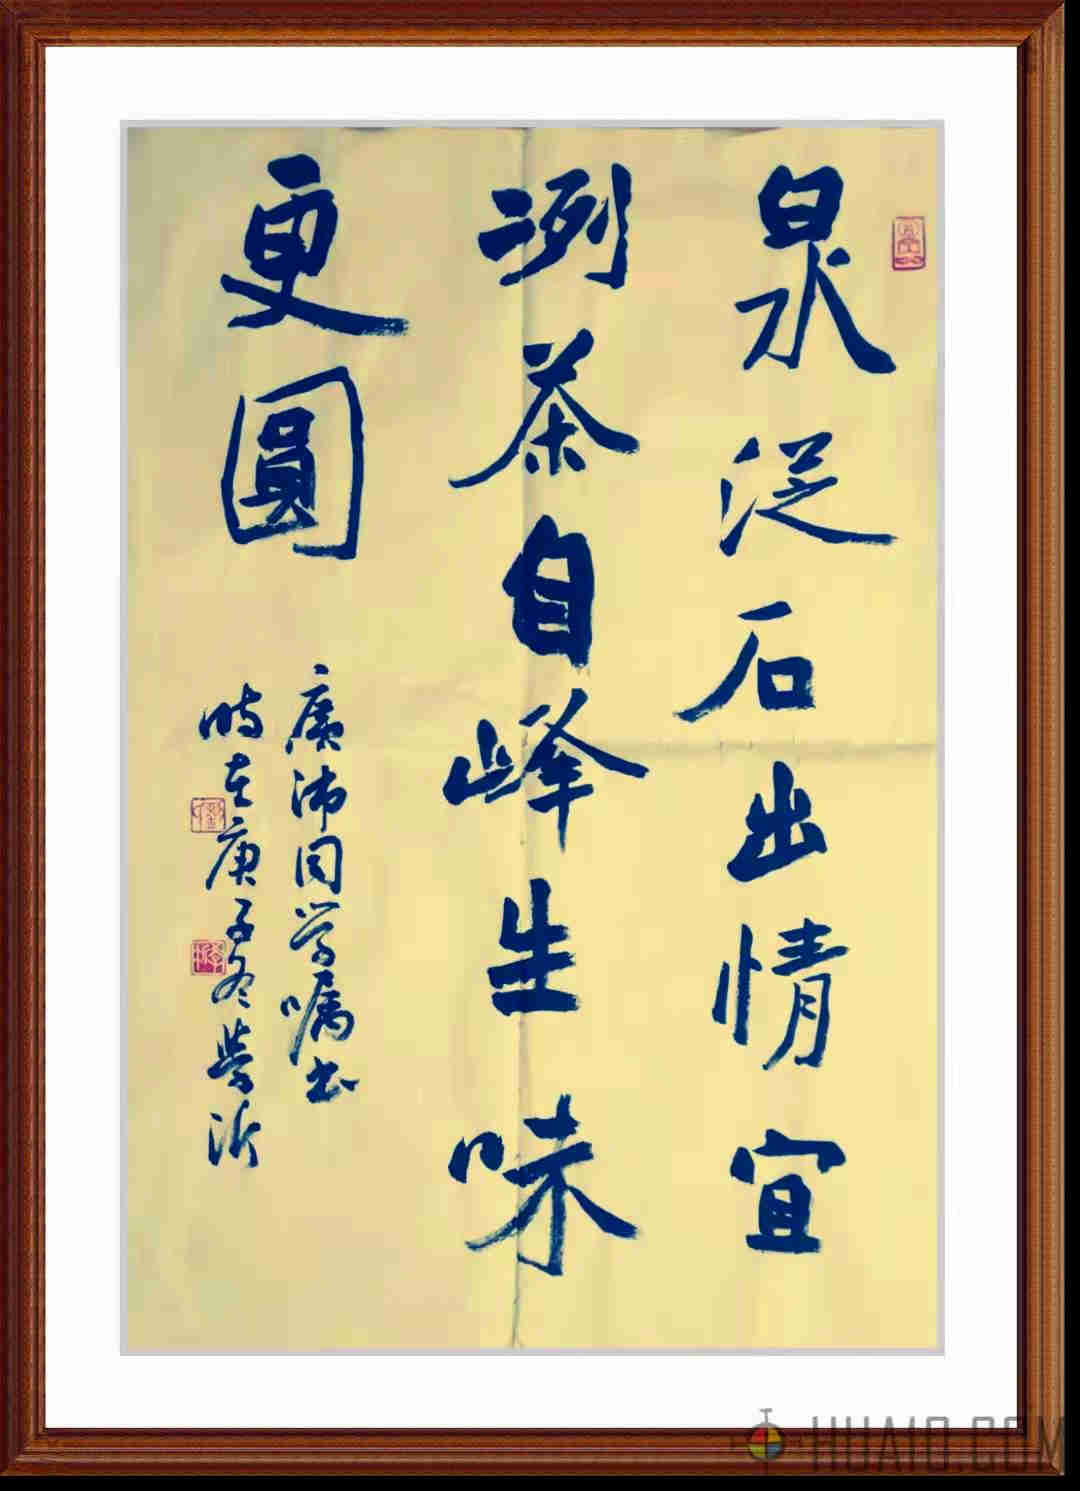 泉從石出情宜
冽茶自峰生味
更圓
廣沛同学嘱书
時在庚子冬沂
HUA10.COM